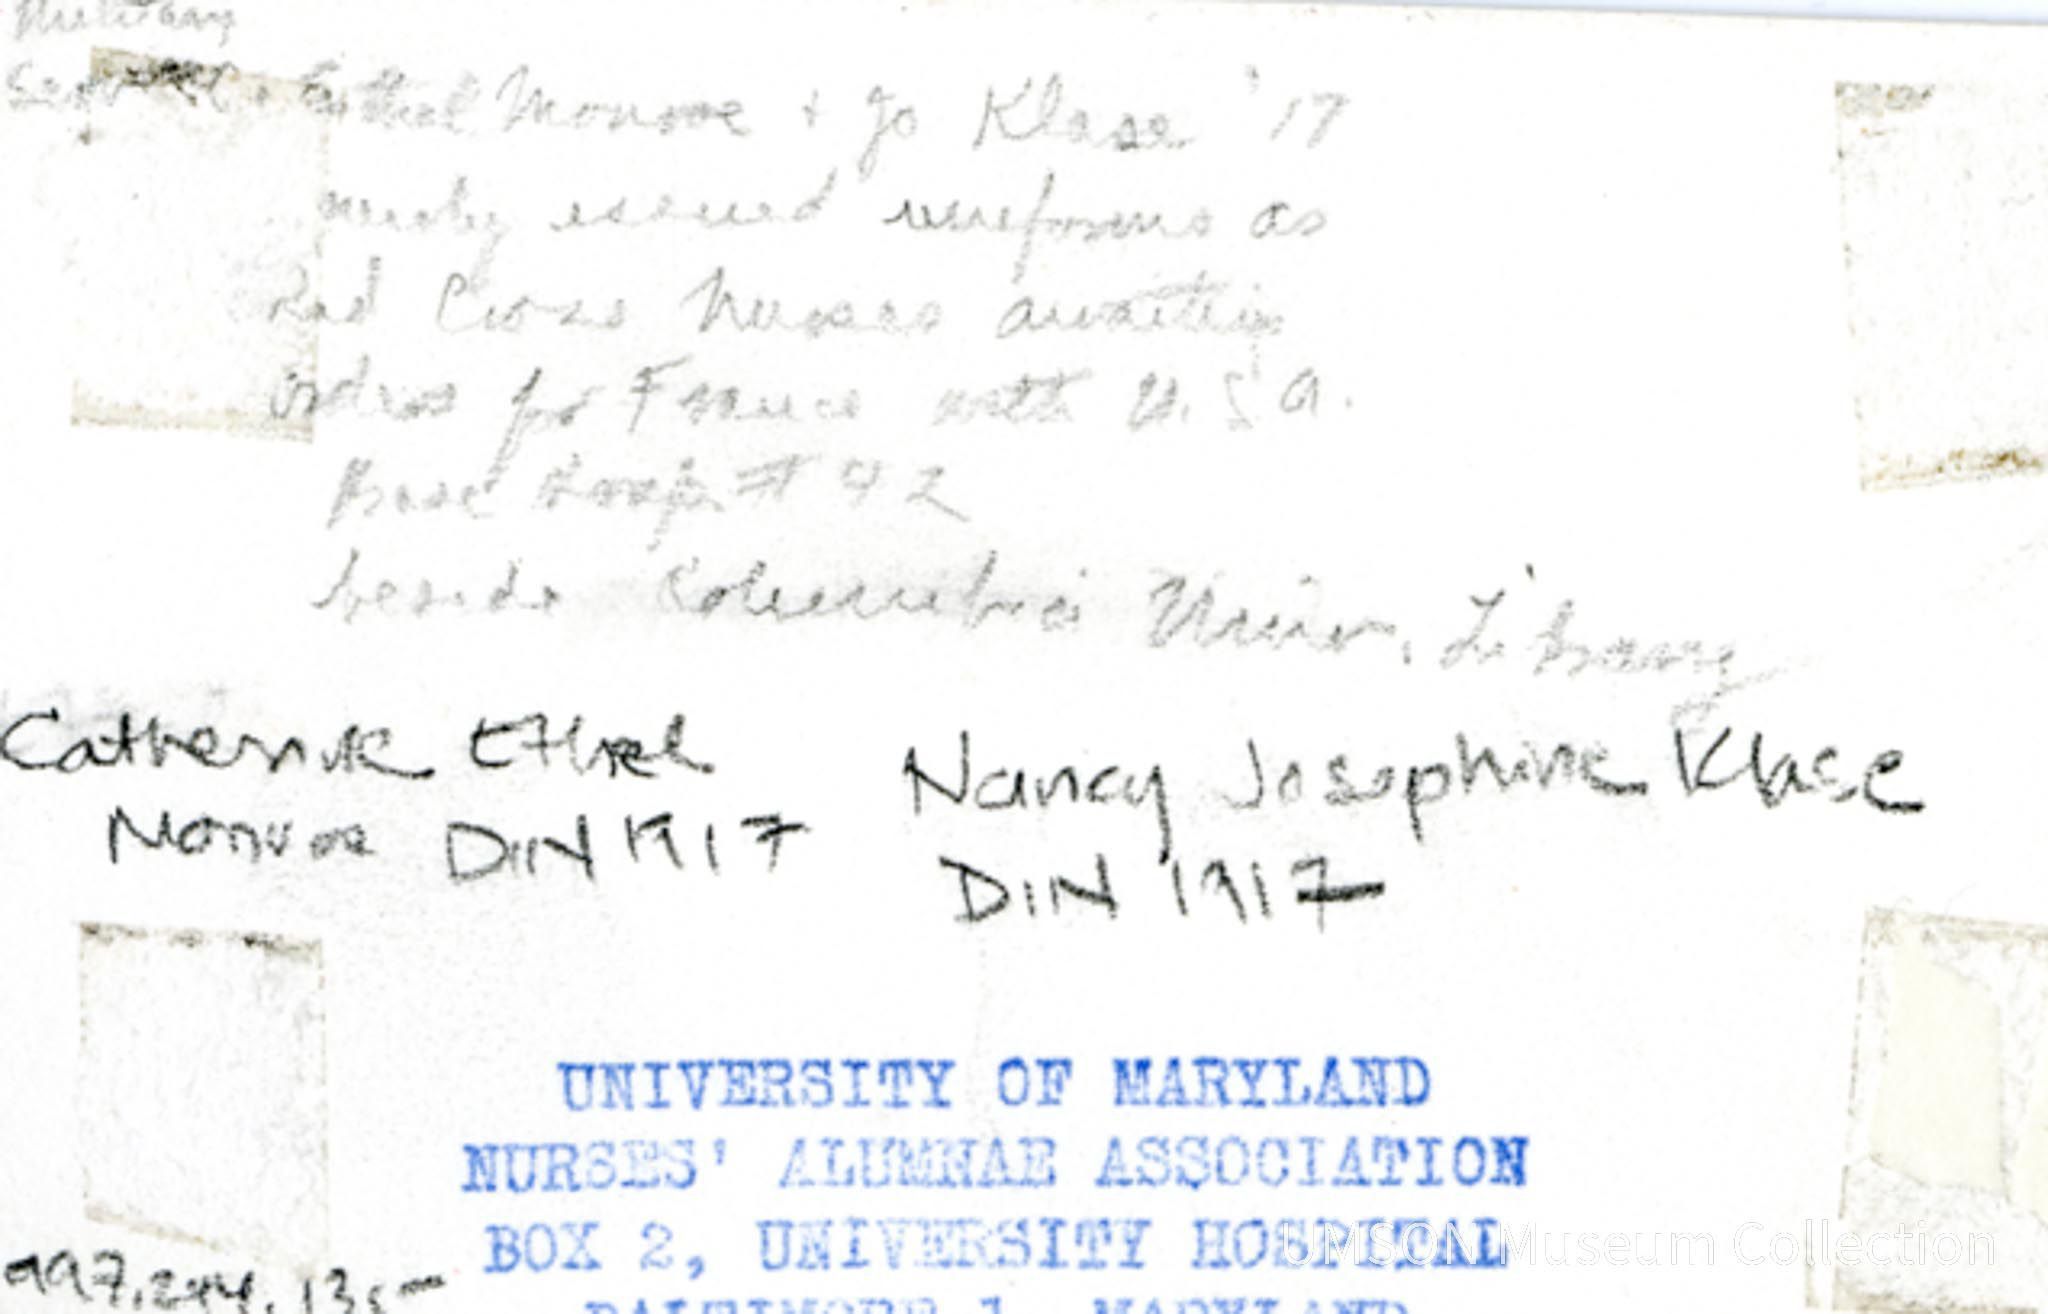 Military
Service. Ethel Monroe + Jo Klase '17
newly issued uniforms as
Red Cross Nurses awaiting
orders for France with U.S.A.
Base Hosp. # 42
beside Columbia Univer. Library
Catherine Ethel
Monroe DIN 1917
Nancy Josephine Klase
DIN 1917
UNIVERSITY OF MARYLAND
NURSES' ALUMNAE ASSOCIATION
BOX 2, UNIVERSITY HOSPITAL
BALTIMORE 1, MARYLAND
UMSON Museum Collection